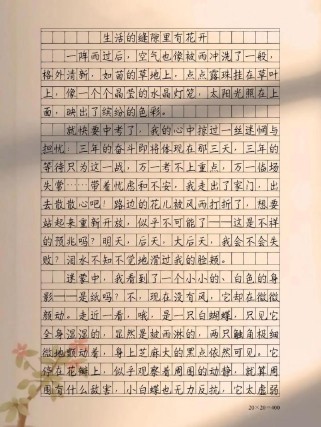 生活的缝隙里有花开
一阵雨过后，空气也像被雨冲洗了一般，
格外清新，如茵的草地上，点点露珠挂在草叶
上，像一个个晶莹的水晶灯笼，太阳光照在上
面，映出了缤纷的色彩。
就快要中考了，我的心中掠过一丝迷惘与
担忧，三年的奋斗即将体现在那三天，三年的
等待只为这一战，万一考不上重点，万一临场
失常……带着忧虑和不安，我走出了家门，出
去散散心吧！路边的花儿被风雨打折了，想要
站起来重新开放，似乎不可能了——这是不祥
的预兆吗？明天，后天，大后天，我会不会失
败？泪水不知不觉地滑过我的脸颊。
迷蒙中，我看到了一个小小的、白色的身
影——是纸吗？不，现在没有风，它却在微微
颤动。走近一看，哦，是一只白蝴蝶，只见它
全身湿湿的，显然是被雨淋的，两只触角极细
微地颤动着，身上芝麻大的黑点依然可见。它
停在花瓣上，似乎观察着周围的动静，就算周
围有什么敌害，小白蝶也无力反抗，它太虚弱
20×20=400